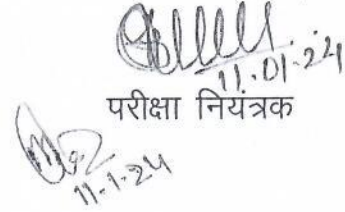 11.01.24
परीक्षा नियंत्रक
11-1-24